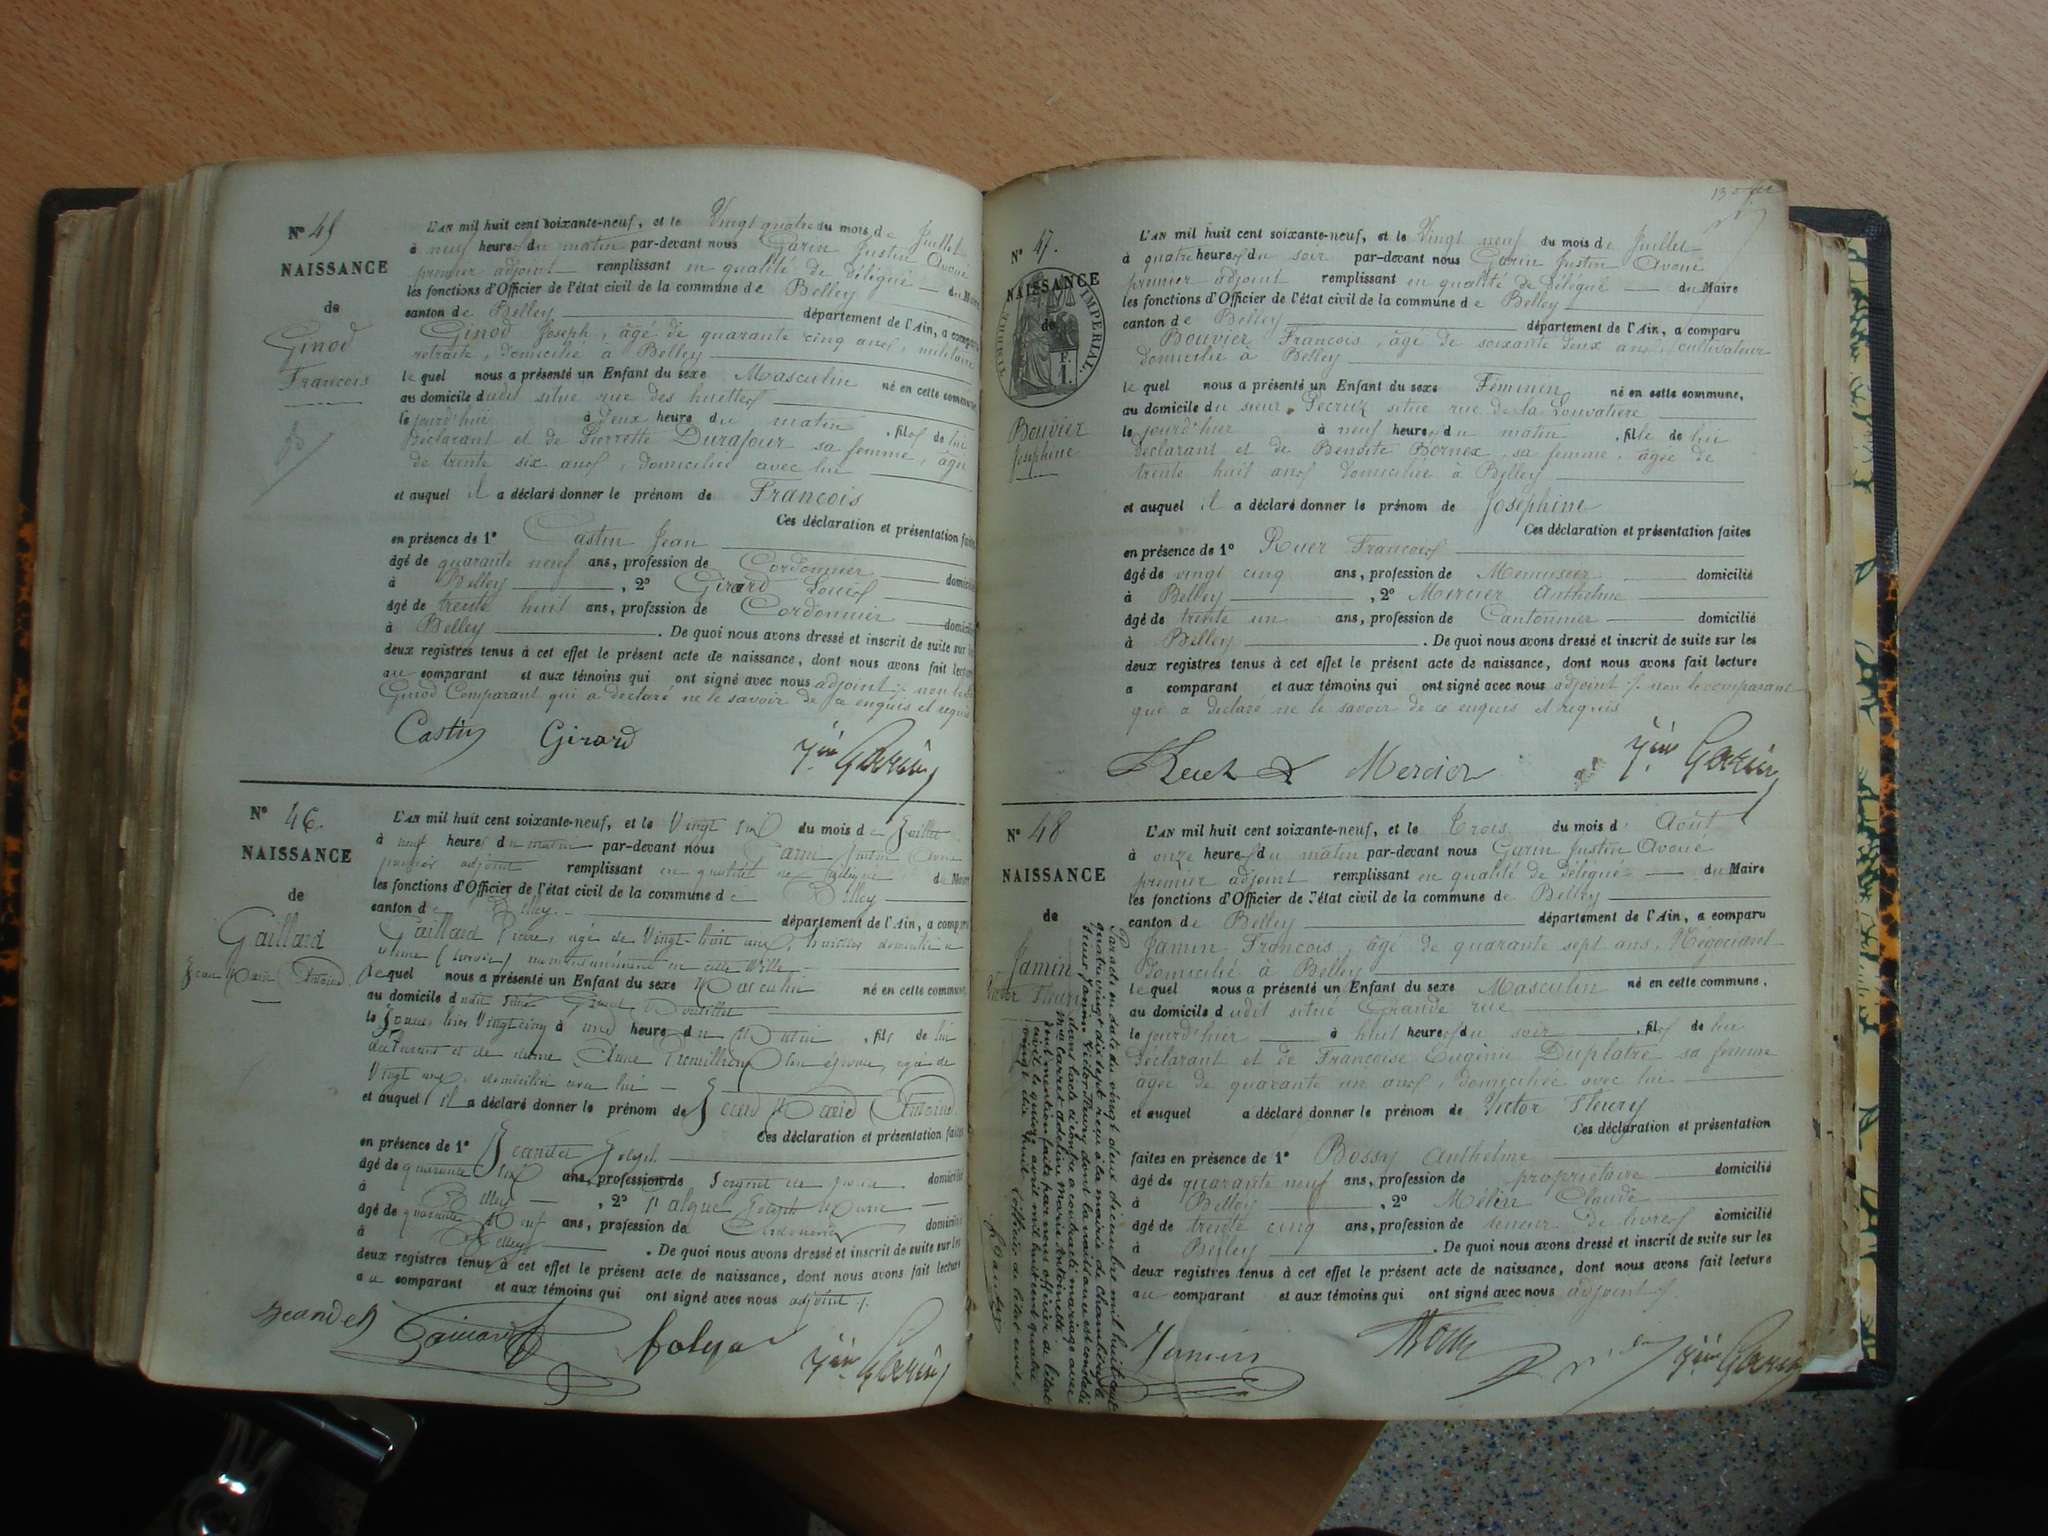 Nº 45
NAISSANCE
de
Ginod
François
L'AN mil huit cent soixante-neuf, et le Vingt quatre du mois de Juillet
à neuf heures du matin par-devant nous Garin Justin Avoué
premier adjoint remplissant en qualité de Délégué du Maire
les fonctions d'Officier de l'état civil de la commune de Belley
canton de Belley département de l'Ain, a comparu
Ginod Joseph, âgé de quarante cinq ans, militaire
retraité, domicilié à Belley
lequel nous a présenté un Enfant du sexe Masculin né en cette commune,
au domicile dudit situé rue des
le jourd'hui à deux heures du matin, fils de lui
Déclarant et de Pierrette Durafour sa femme, âgée
de trente six ans, domiciliée avec lui
et auquel il a déclaré donner le prénom de François
Ces déclaration et présentation faites
en présence de 1º Castin Jean
âgé de quarante neuf ans, profession de Cordonnier domicilié
à Belley, 2º Girard Louis
âgé de trente huit ans, profession de Cordonnier domicilié
à Belley. De quoi nous avons dressé et inscrit de suite sur les
deux registres tenus à cet effet le présent acte de naissance, dont nous avons fait lecture
au comparant et aux témoins qui ont signé avec nous adjoint non le dit
Ginod Comparant qui a déclaré ne le savoir de ce enquis et requis
Castin Girard Jin Garin
Nº 46.
NAISSANCE
de
Gaillard
Jean Marie Antoine
L'AN mil huit cent soixante-neuf, et le Vingt six du mois de Juillet
à neuf heures du matin par-devant nous Garin Justin Avoué
premier adjoint remplissant en qualité de Délégué du Maire
les fonctions d'Officier de l'état civil de la commune de Belley
canton de Belley département de l'Ain, a comparu
Gaillard Pierre, âgé de Vingt-huit ans, domicilié à
momentanément en cette Ville
lequel nous a présenté un Enfant du sexe Masculin né en cette commune,
au domicile dudit situé
le jour hier Vingt cinq à une heure du Matin, fils de lui
déclarant et de dame Anne son épouse, âgée de
Vingt ans, domiciliée avec lui
et auquel il a déclaré donner le prénom de Jean Marie Antoine
Ces déclaration et présentation faites
en présence de 1º Jeandet Joseph
âgé de quarante six ans, profession de Sergent de domicilié
à Belley, 2º Falque Joseph
âgé de quarante Neuf ans, profession de domicilié
à Belley. De quoi nous avons dressé et inscrit de suite sur les
deux registres tenus à cet effet le présent acte de naissance, dont nous avons fait lecture
au comparant et aux témoins qui ont signé avec nous adjoint
Jeandet Gaillard falque Jin Garin
Nº 47.
NAISSANCE
de
TIMBRE IMPERIAL.
F.
1.
Bouvier
Joséphine
L'AN mil huit cent soixante-neuf, et le Vingt neuf du mois de Juillet
à quatre heures du soir par-devant nous Garin Justin Avoué
premier adjoint remplissant en qualité de Délégué du Maire
les fonctions d'Officier de l'état civil de la commune de Belley
canton de Belley département de l'Ain, a comparu
Bouvier François, âgé de soixante deux ans, cultivateur
domicilié à Belley
lequel nous a présenté un Enfant du sexe Féminin né en cette commune,
au domicile du sieur Decruz situé rue de la Louvatière
le jourd'hier à neuf heures du matin, fille de lui
déclarant et de Benoîte Bornex, sa femme, âgée de
trente huit ans domiciliée à Belley
et auquel il a déclaré donner le prénom de Joséphine
Ces déclaration et présentation faites
en présence de 1º Ruer François
âgé de vingt cinq ans, profession de Menuisier domicilié
à Belley, 2º Mercier Anthelme
âgé de trente un ans, profession de Cantonnier domicilié
à Belley. De quoi nous avons dressé et inscrit de suite sur les
deux registres tenus à cet effet le présent acte de naissance, dont nous avons fait lecture
a comparant et aux témoins qui ont signé avec nous adjoint non le comparant
qui a déclaré ne le savoir de ce enquis et requis
Mercier Jin Garin
Nº 48
NAISSANCE
de
Jamin
Victor Fleury
L'AN mil huit cent soixante-neuf, et le Trois du mois d' Août
à onze heures du matin par-devant nous Garin Justin Avoué
premier adjoint remplissant en qualité de Délégué du Maire
les fonctions d'Officier de l'état civil de la commune de Belley
canton de Belley département de l'Ain, a comparu
Jamin François, âgé de quarante sept ans, Négociant
domicilié à Belley
lequel nous a présenté un Enfant du sexe Masculin né en cette commune,
au domicile dudit situé Grande rue
le jourd'hier à huit heures du soir, fils de lui
Déclarant et de Françoise Eugénie Duplatre sa femme
âgée de quarante un ans, domiciliée avec lui
et auquel a déclaré donner le prénom de Victor Fleury
Ces déclaration et présentation
faites en présence de 1º Bossy Anthelme
âgé de quarante neuf ans, profession de propriétaire domicilié
à Belley, 2º Mélin Claude
âgé de trente cinq ans, profession de teneur de livres domicilié
à Belley. De quoi nous avons dressé et inscrit de suite sur les
deux registres tenus à cet effet le présent acte de naissance, dont nous avons fait lecture
au comparant et aux témoins qui ont signé avec nous adjoint
Jamin Jin Garin
Par acte en date du vingt deux décembre mil huit cent
quatre vingt dix sept reçu à la mairie de Chambéry le
sieur Jamin Victor Fleury dont la naissance est constatée
dans l'acte ci contre a contracté mariage avec
Mlle Carret Adeline Marie Antoinette.
dont mention faite par nous officier de l'état
civil le quinze avril mil huit cent quatre
vingt dix huit. L'officier de l'état civil,